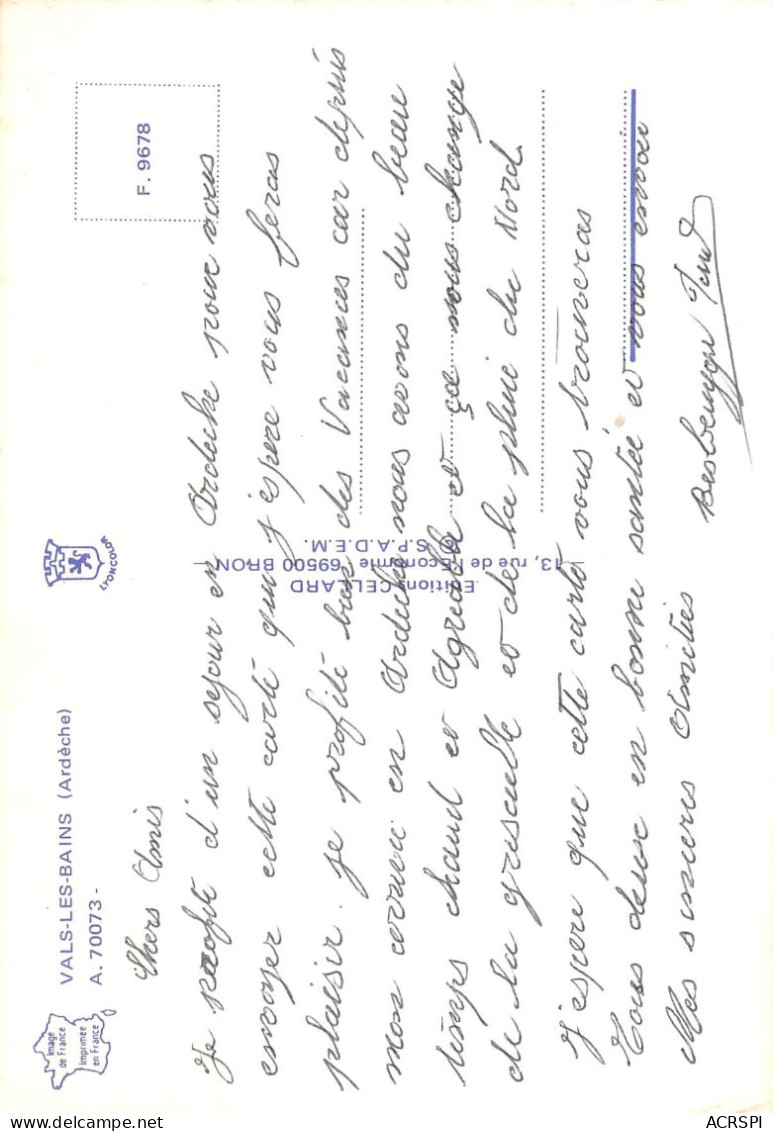 VALS-LES-BAINS (Ardèche)
A. 70073 -
Image
de France
imprimée
en France
LYONCOLOR
F. 9678
Chers Amis
Je profite d'un sejour en Ardeche pour vous
envoyer cette carte qui j'espere vous feras
plaisir. Je profite bien des Vacances car depuis
mon arrivee en Ardeche nous avons du beau
temps chaud et Agreable et ça nous change
de la grisaille et de la pluie du Nord.
J'espere que cette carte vous trouveras
Tous deux en bonne santée et vous envoie
Mes sinceres Amitiés
Editions CELLARD
13, rue de l'Economie 69500 BRON
© S.P.A.D.E.M.
ACRSPI